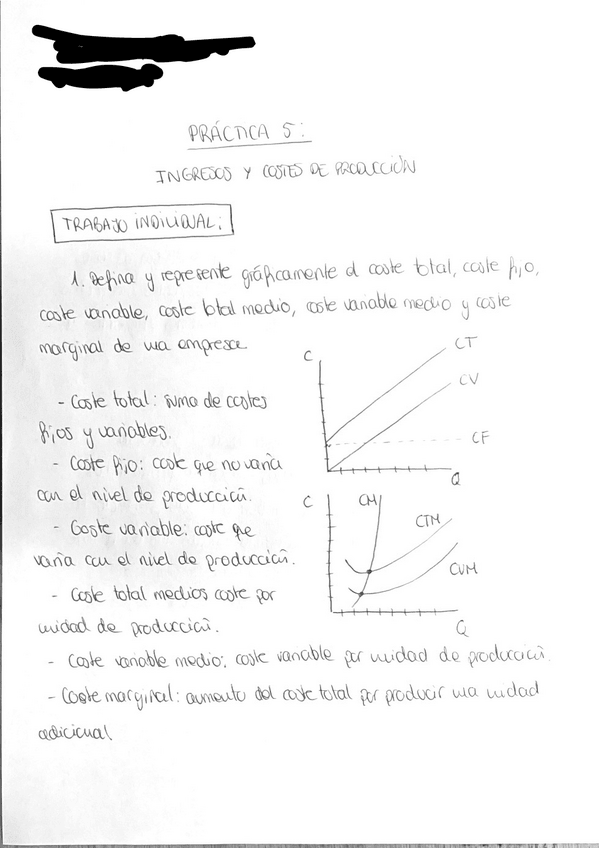 PRÁCTICA 5:
INGRESOS Y COSTES DE PRODUCCIÓN
TRABAJO INDIVIDUAL:
1. Defina y represente gráficamente el coste total, coste fijo,
coste variable, coste total medio, coste variable medio y coste
marginal de una empresa
C
CT
CV
CF
Q
- Coste total: suma de costes
fijos y variables.
- Coste fijo: coste que no varía
con el nivel de producción.
- Coste variable: coste que
varía con el nivel de producción.
- Coste total medios coste por
unidad de producción.
C
CM
CTM
CVM
Q
- Coste variable medio: coste variable por unidad de producción.
- Coste marginal: aumento del coste total por producir una unidad
adicional